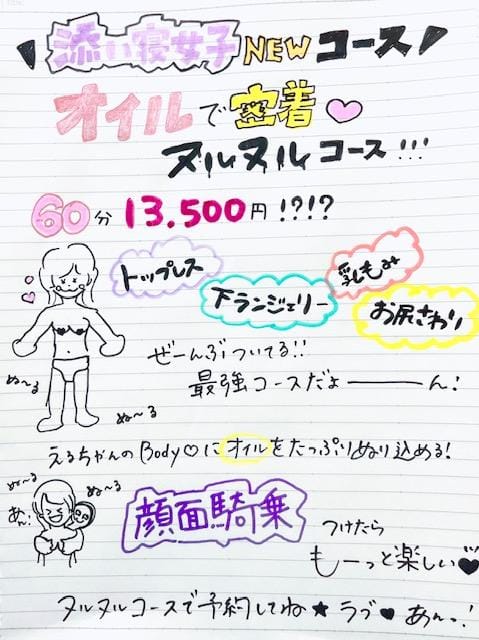 添い寝女子 NEW コース
オイルで密着
ヌルヌルコース!!!
60分 13.500円 !?!?
トップレス
下ランジェリー
乳もみ
お尻さわり
ぜーんぶついてる!!
最強コースだよーーーん!
ぬ〜る
ぬ〜る
えるちゃんのBody♡にオイルをたっぷりぬり込める!
ぬ〜る
ぬ〜る
あん!
顔面騎乗
つけたら
もーっと楽しい♥
ヌルヌルコースで予約してね★ラブ♥あんっ!